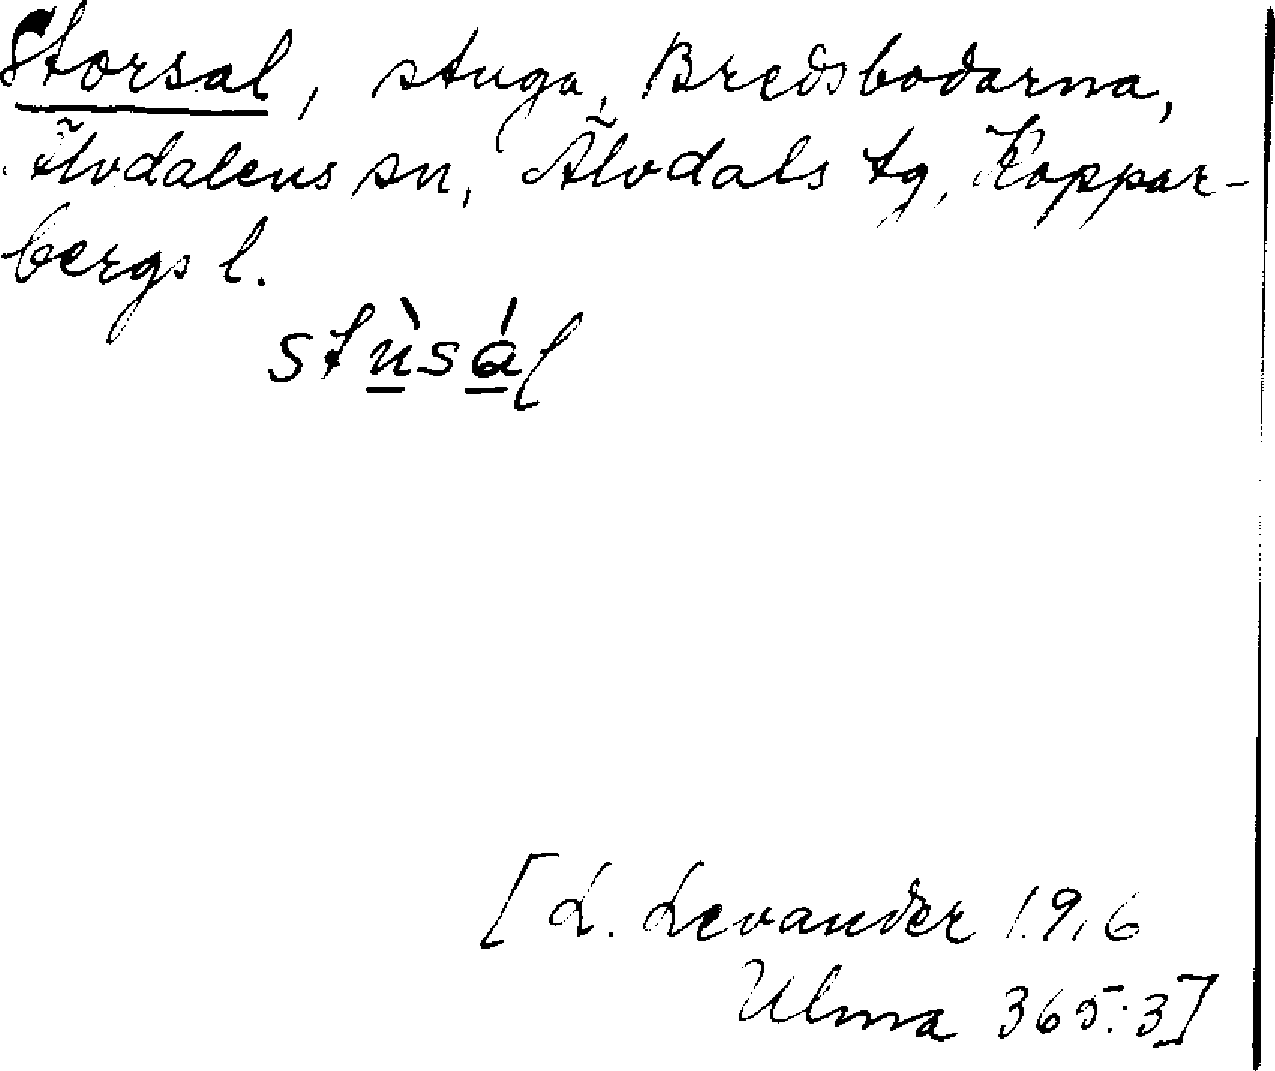 Storsal, stuga, Bredsbodarna,
Älvdalens sn, Älvdals tg, Koppar-
bergs l.
stùsál
[L. Levander 1916
Ulma 365:3]